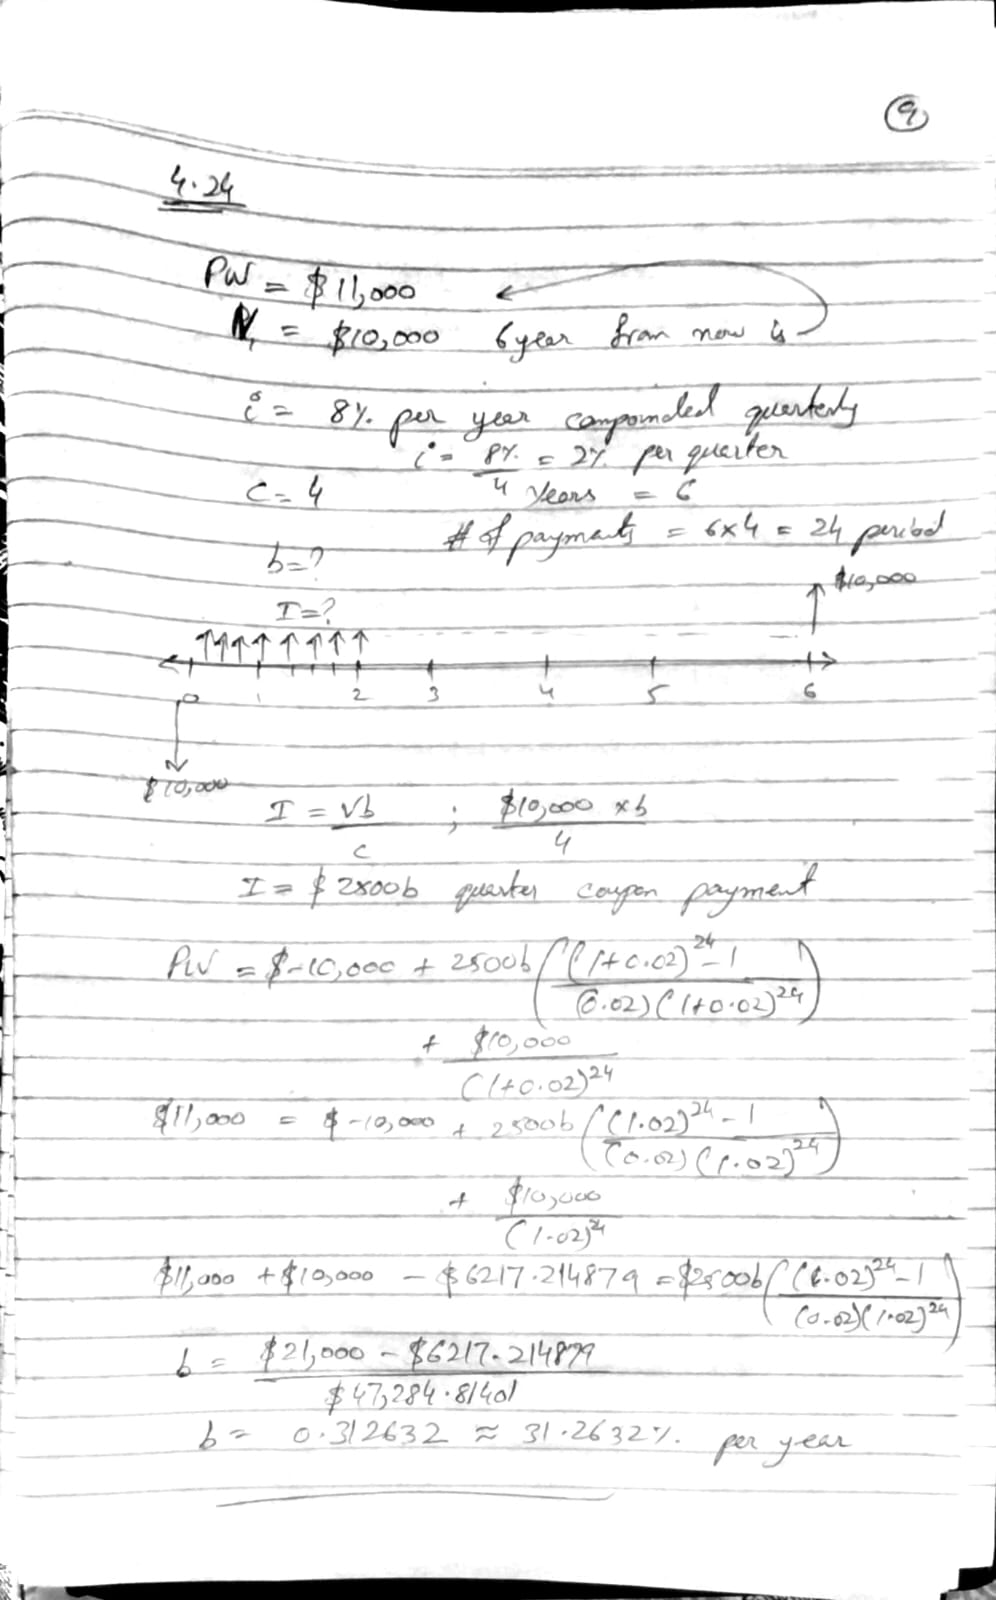 9
4.24
PW = $11,000
V, = $10,000 6 year from now is
i = 8% per year compounded quarterly
i = 8%/4 = 2% per quarter
c = 4 Years = 6
# of payments = 6x4 = 24 period
b=?
$10,000
I=?
0 1 2 3 4 5 6
$10,000
I = Vb/c ; $10,000 xb/4
I = $ 2500b quarter coupon payment
PW = $-10,000 + 2500b ((1+0.02)^24-1 / (0.02)(1+0.02)^24)
+ $10,000 / (1+0.02)^24
$11,000 = $-10,000 + 2500b ((1.02)^24-1 / (0.02)(1.02)^24)
+ $10,000 / (1.02)^24
$11,000 + $10,000 - $6217.214879 = $2500b ((1.02)^24-1 / (0.02)(1.02)^24)
b = $21,000 - $6217.214879 / $47,284.81401
b = 0.312632 ≈ 31.2632% per year